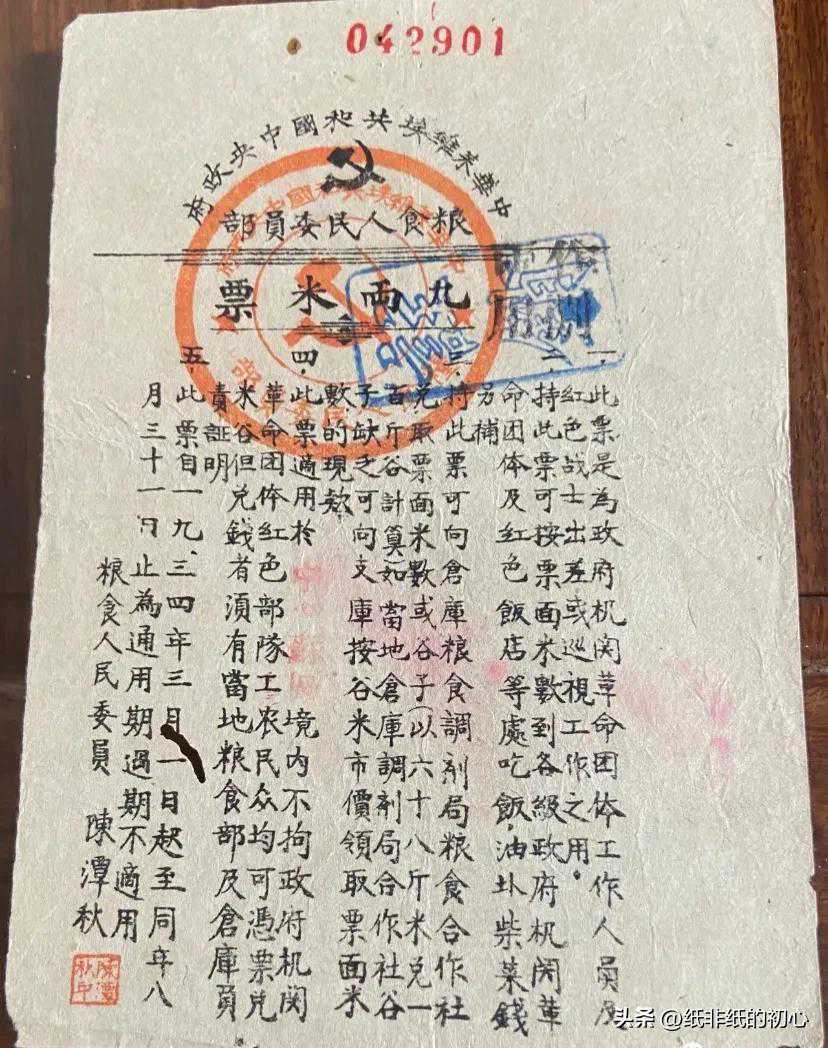 042901
中華苏維埃共和國中央政府
粮食人民委員部
九両米票
一、此票是為政府机関革命团体工作人員及
紅色战士出差或巡視工作之用。
二、持此票可按票面米数到各級政府机関革
命团体及红色飯店等處吃飯，油盐柴菜錢
另補
三、持此票可向倉庫粮食調剂局粮食合作社
兑取票面米數或谷子（以六十八斤米兑一
百斤谷計算如當地倉庫調剂局合作社谷
子缺乏可向支庫按谷米市價領取票面米
數的現欵
四、此票適用於　境内不拘政府机関
革命团体红色部隊工农民众均可憑票兑
米谷但兑錢者須有當地粮食部及倉庫負
責証明
五、此票自一九三四年三月一日起至同年八
月三十一日止為通用期過期不適用
粮食人民委員　陳潭秋
陳潭秋印
头条 @纸非纸的初心